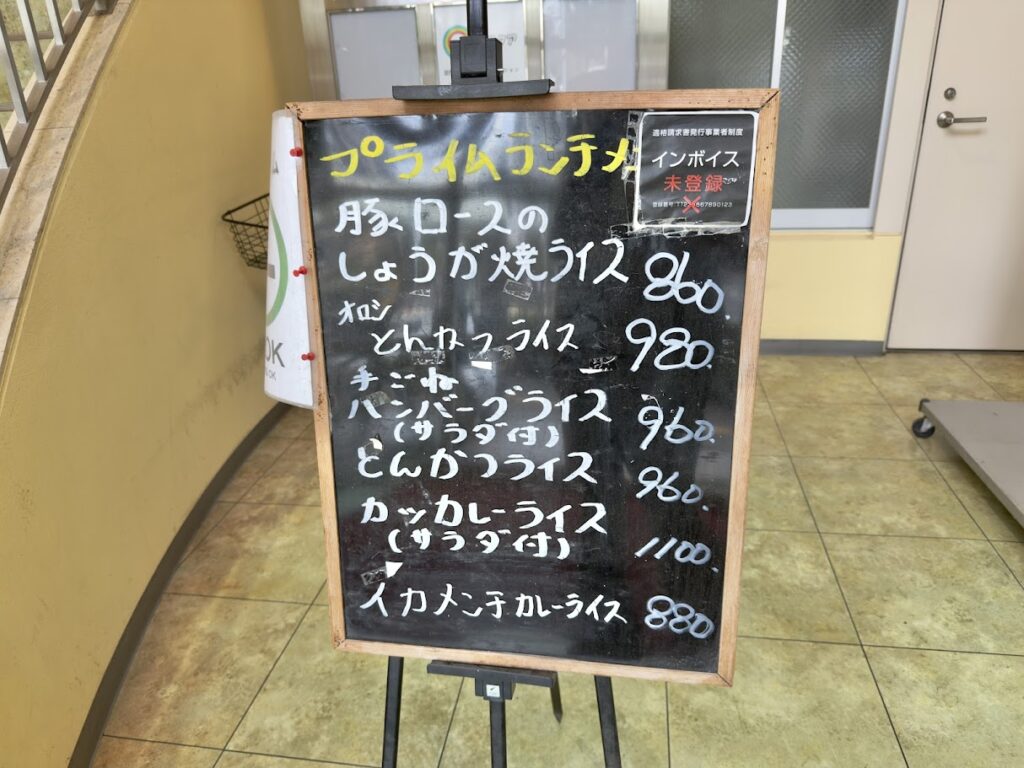 プライムランチメ
適格請求書発行事業者制度
インボイス
未登録
豚ロースの
しょうが焼ライス 860.
オロシ
とんかつライス 980.
手ごね
ハンバーグライス 960.
(サラダ付)
とんかつライス 960.
カツカレーライス
(サラダ付) 1100.
イカメンチカレーライス 880
OK